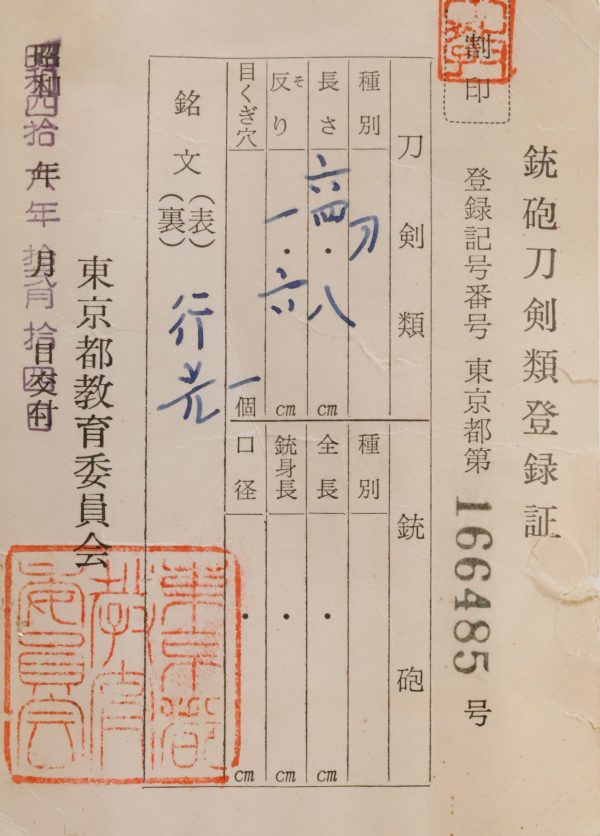 銃砲刀剣類登録証
登録記号番号 東京都第 166485 号
割印
刀剣類
種別 刀
長さ 六四・八 cm
反り 一・六 cm
そ
目くぎ穴 一個
銘文 (表)
(裏)
行光
銃砲
種別
全長 ・ cm
銃身長 ・ cm
口径 ・ cm
東京都教育委員会
昭和四拾 年 月 日交付
東京都
教育
委員会